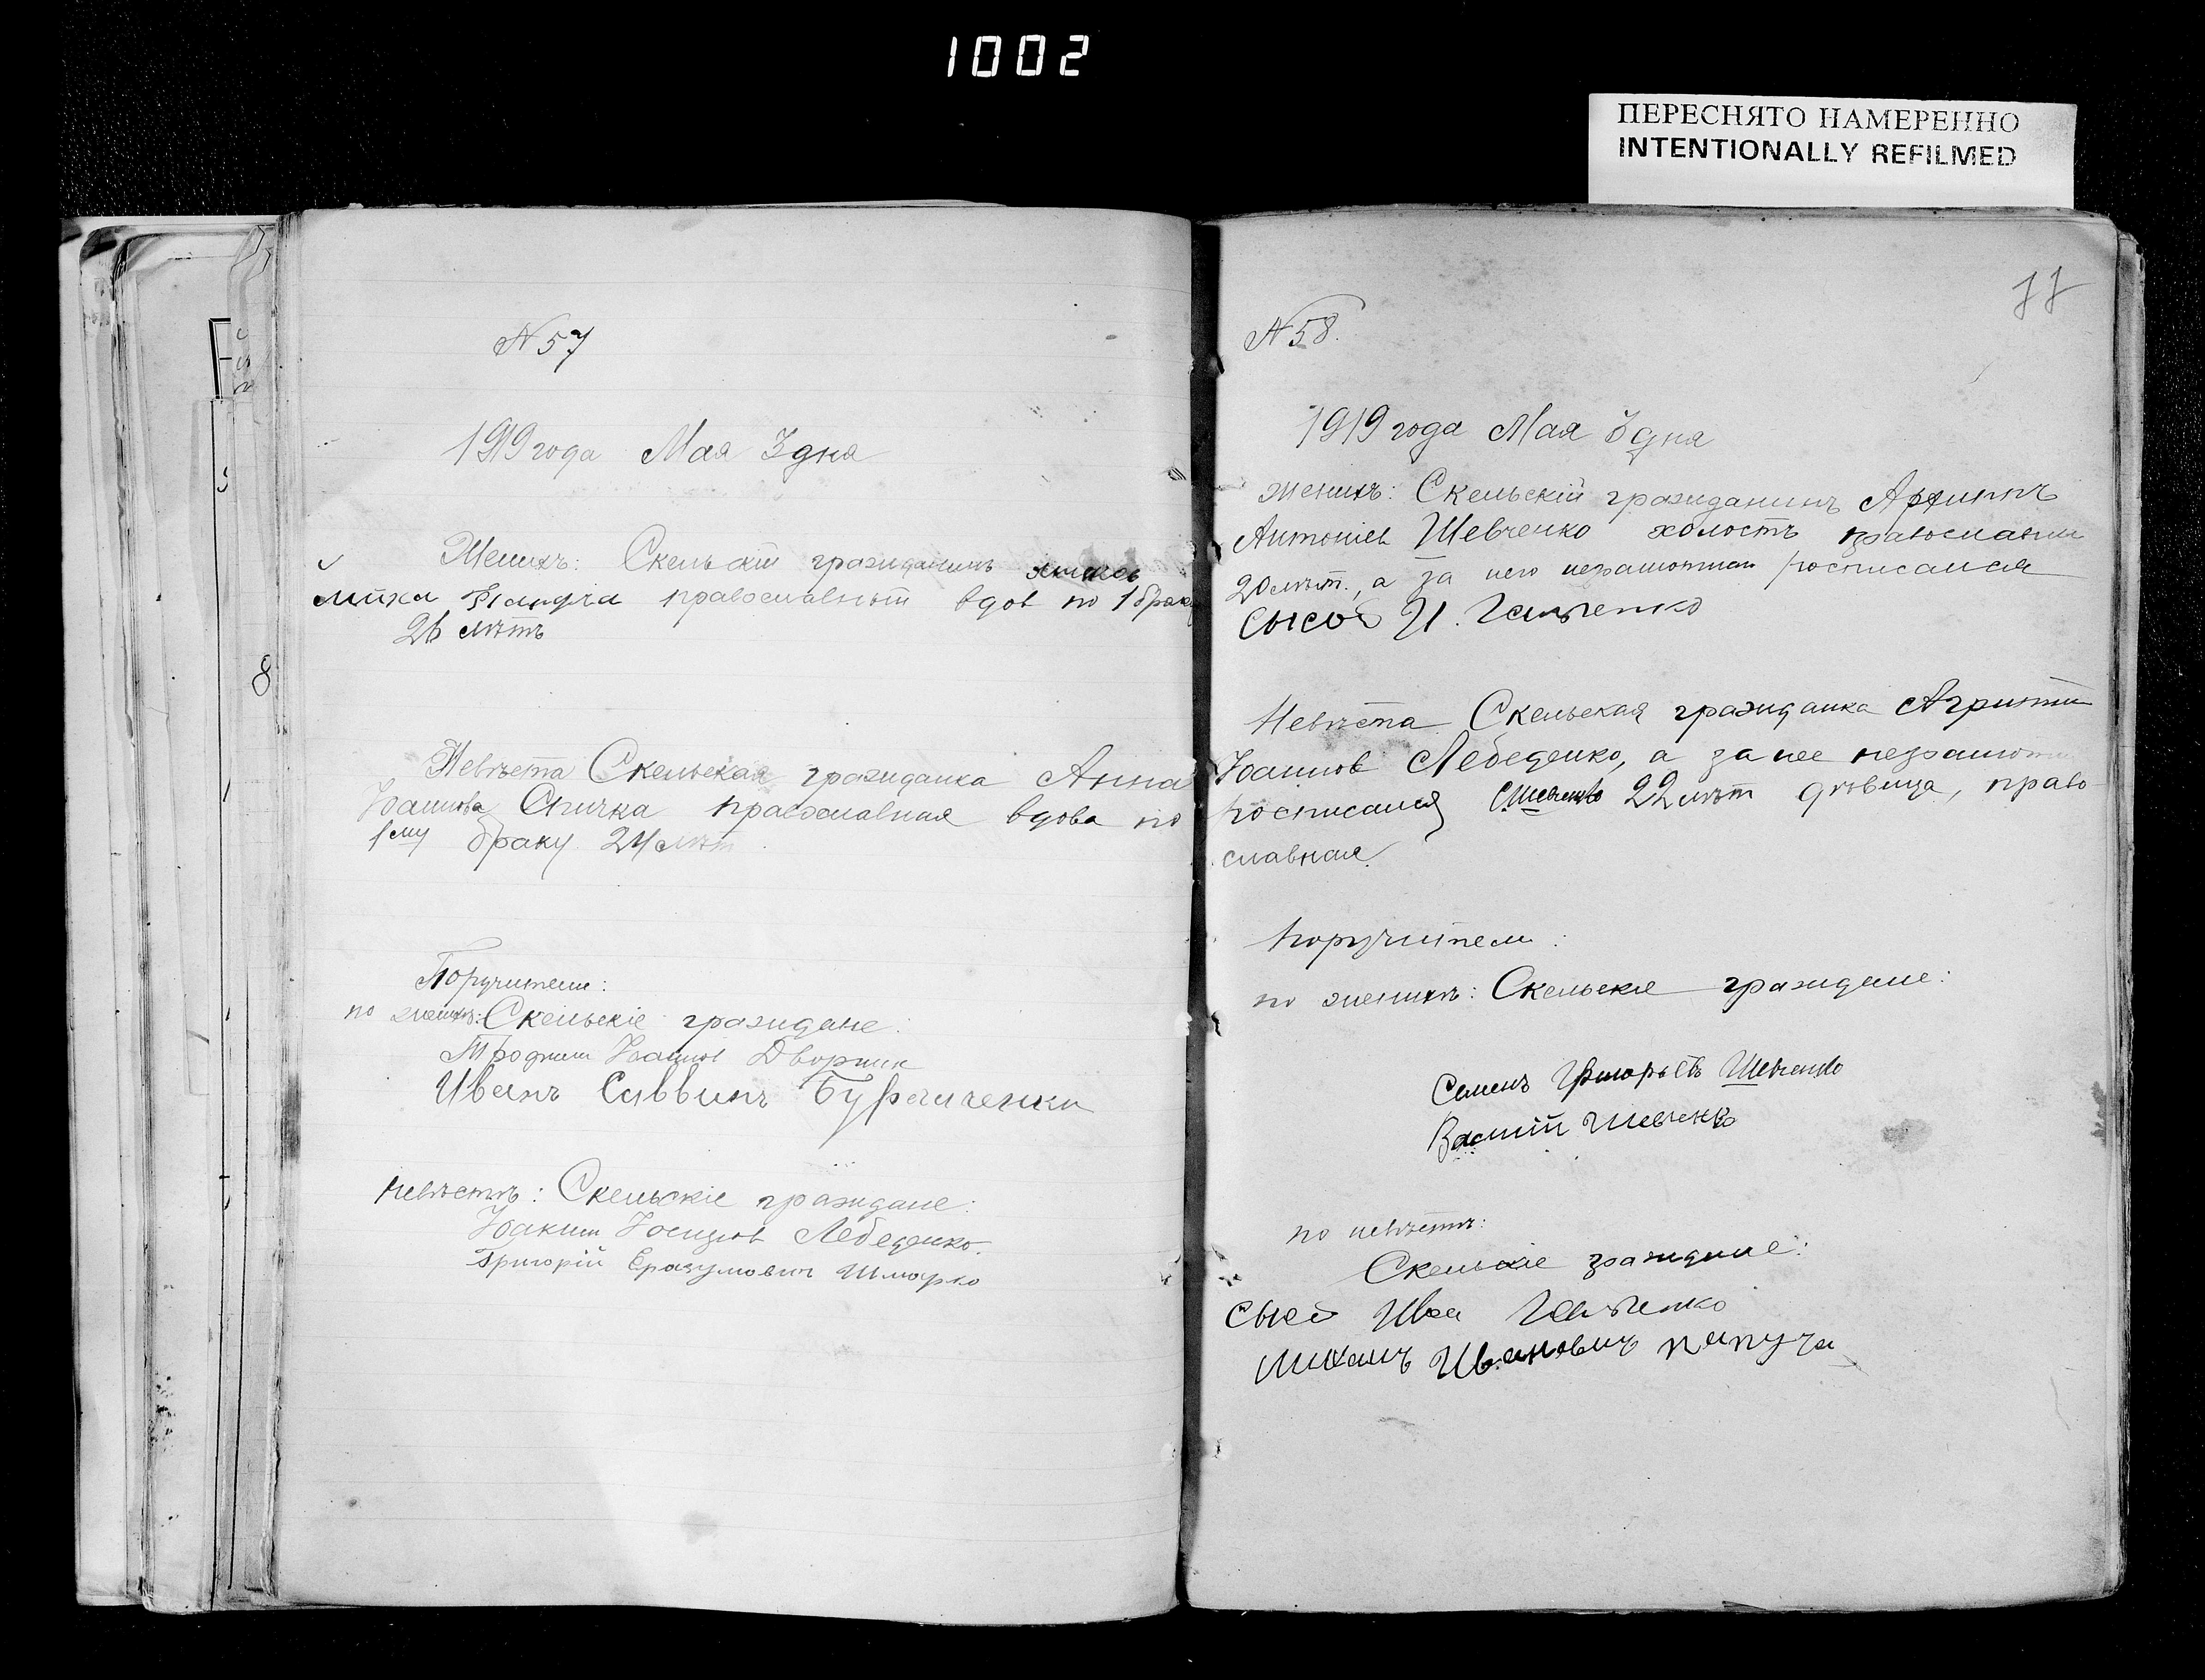 1002
ПЕРЕСНЯТО НАМЕРЕННО
INTENTIONALLY REFILMED
8
N 57
1919 года Мая 3 дня
Женихъ: Скельскій гражданинъ
православный вдов по 1 браку
26 лѣтъ
Невѣста Скельская гражданка Анна
Іоаннова Спичка православная вдова по
1му браку 24 лѣт
Поручители:
по женихѣ: Скельскіе граждане:
Іоаннов Дворник
Иванъ Саввинъ
невѣстѣ: Скельскіе граждане:
Іоаким Іосифов Лебеденко.
Григорій Шморко
77
N 58.
1919 года Мая 3 дня
женихъ: Скельскій гражданинъ
Антоніев Шевченко холостъ православный
20 лѣт., а за него росписался
Сысой И.
Невѣста Скельская гражданка
Іоаннов Лебеденко, а за нее неграмотн
росписался СШевченко 22 лѣт дѣвица, право
славная.
поручители:
по женихѣ: Скельскіе граждане:
Семенъ Шевченко
Василій Шевченко
по невѣстѣ:
Скельскіе граждане:
Сысой Иван
Михаилъ Ивановичъ Папуча